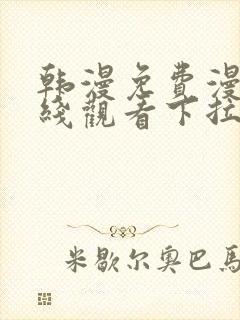 韩漫免費漫
綫觀看下拉
米歇尔奥巴馬